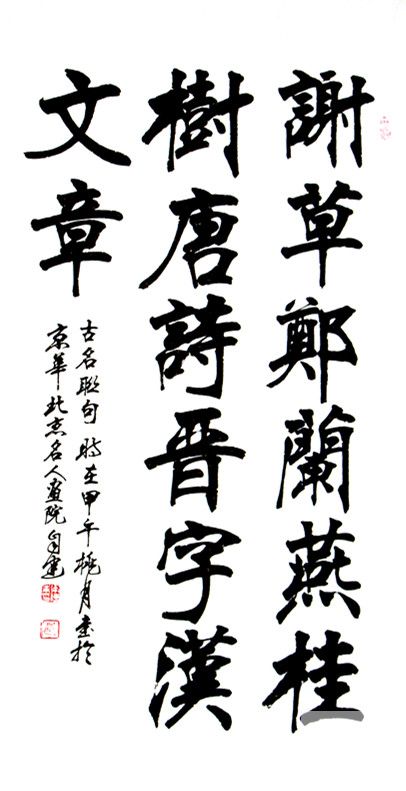 謝草鄭蘭燕桂
樹唐詩晉字漢
文章
古名聯句 時在甲午桃月書於
京華北京名人畫院自建